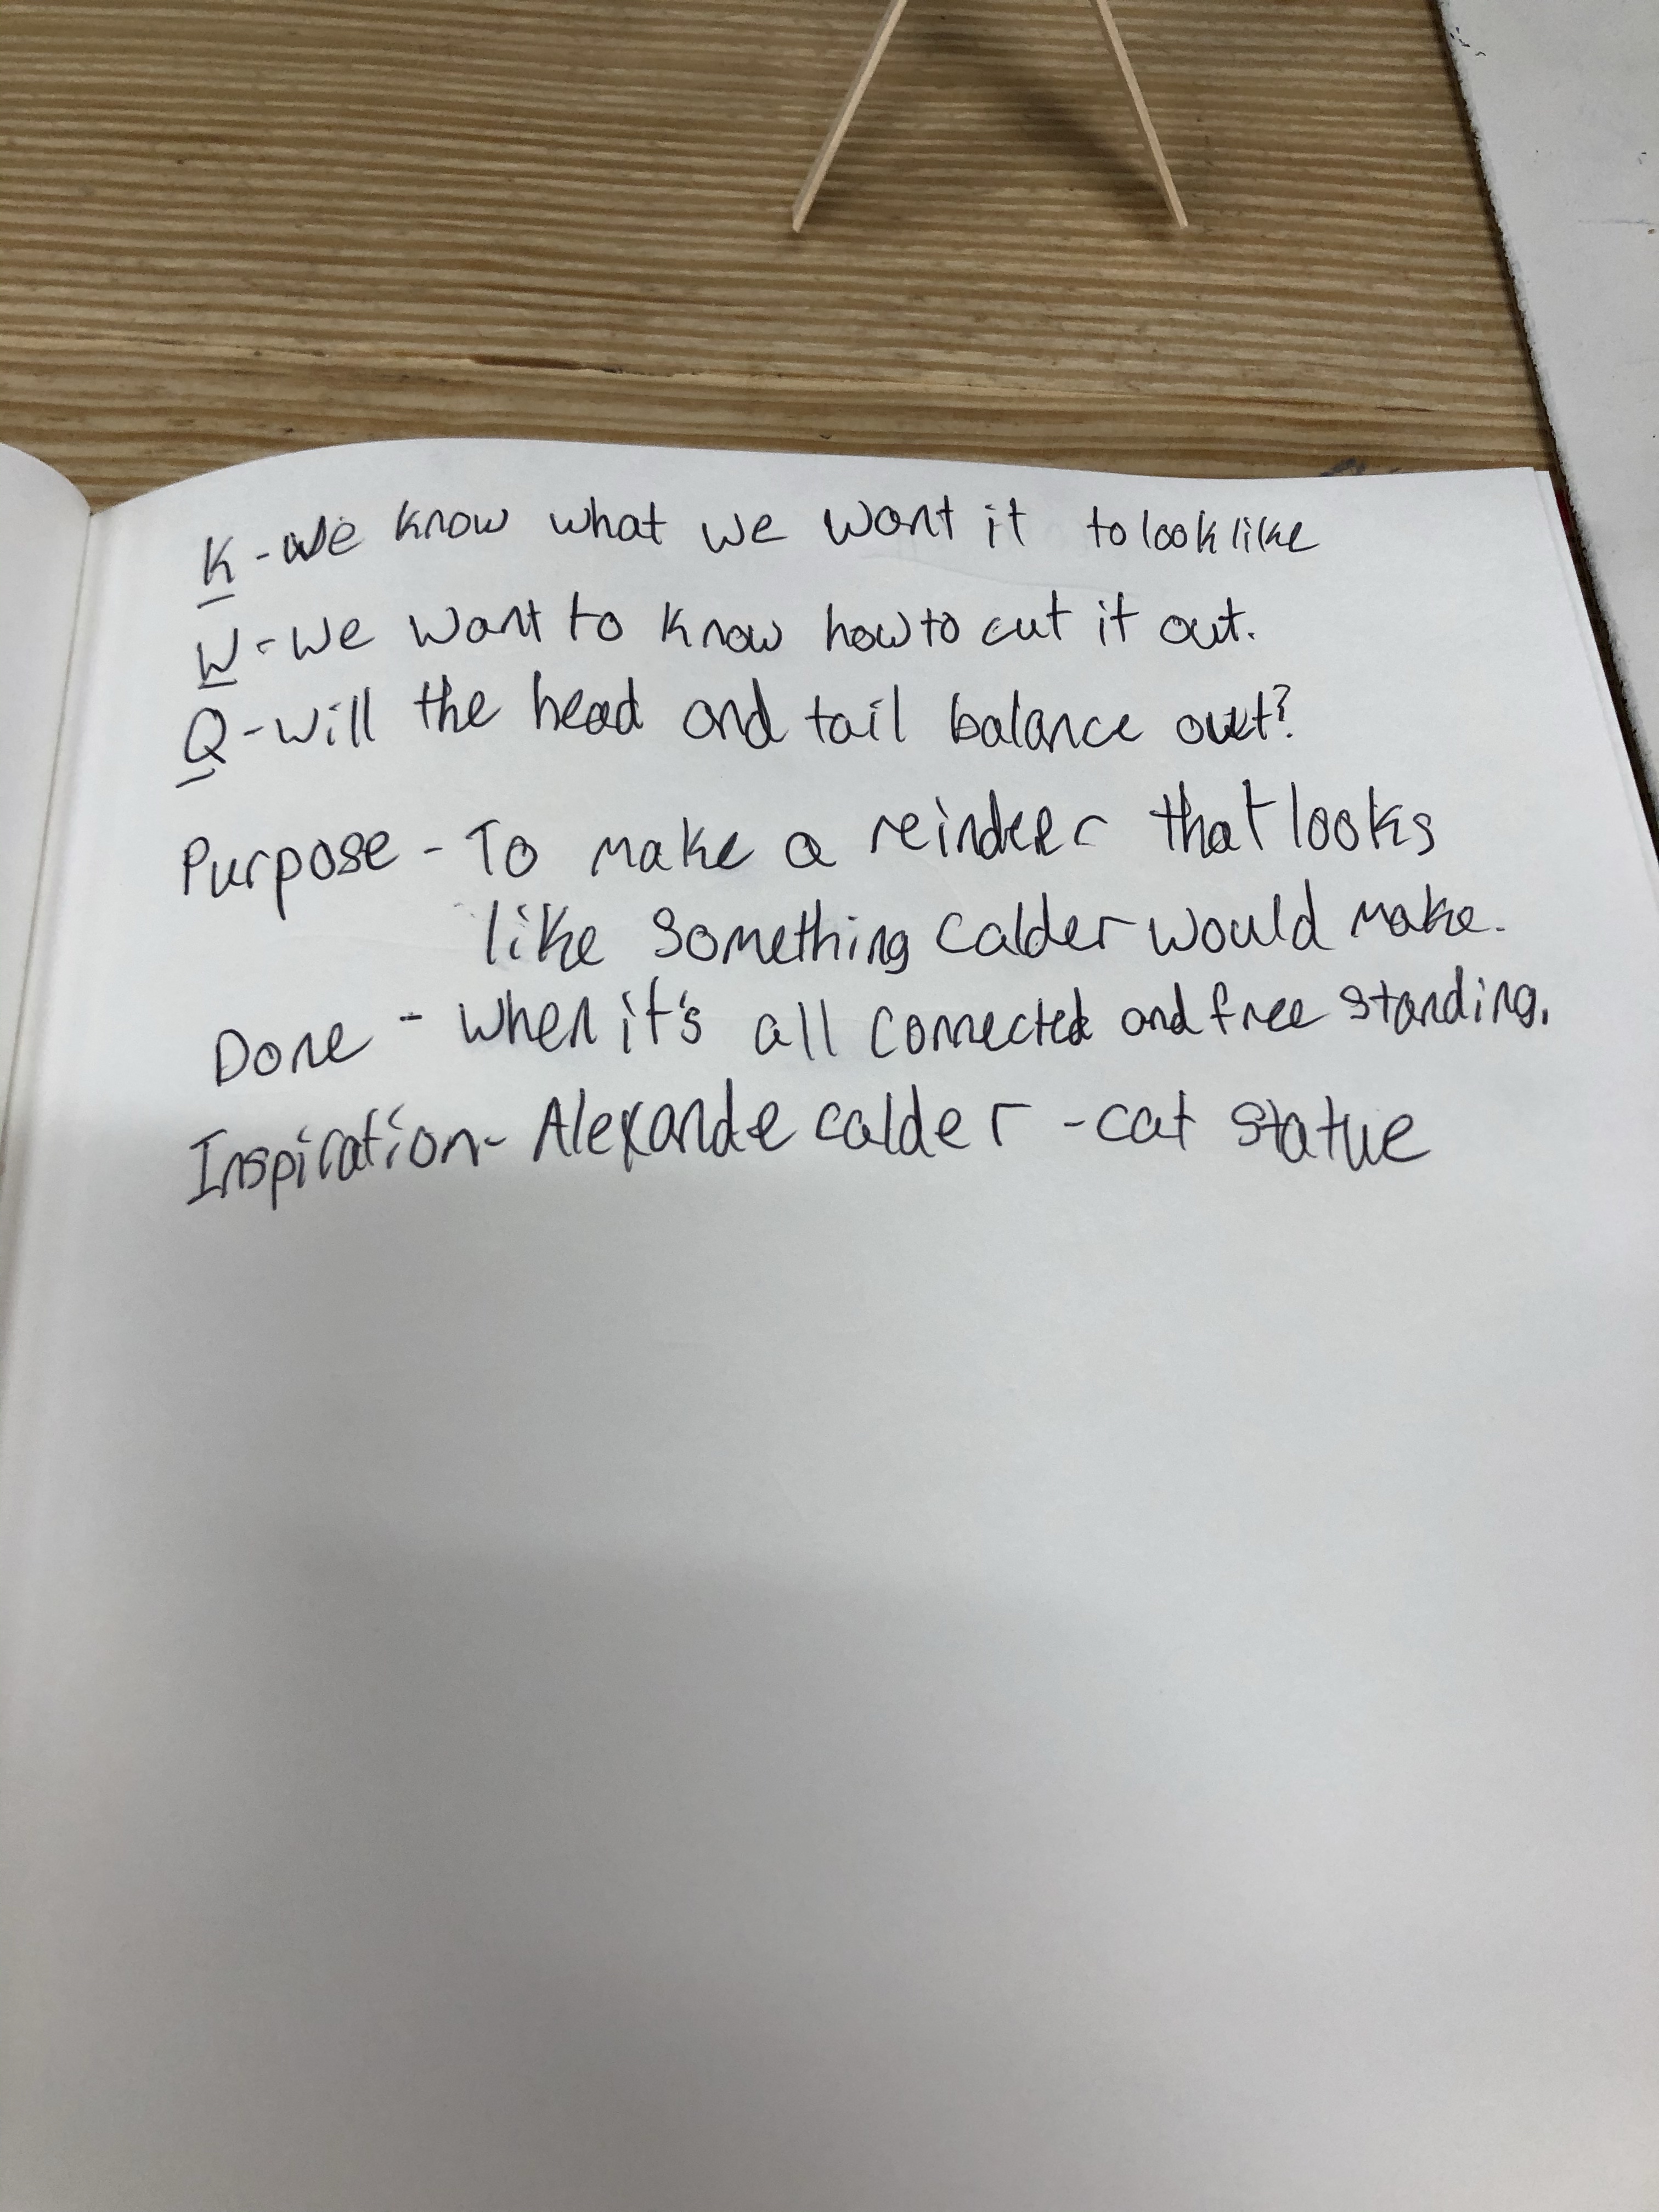 K - We know what we want it to look like
W - We want to know how to cut it out.
Q - Will the head and tail balance out?
Purpose - To make a reindeer that looks
like something Calder would make.
Done - When it's all connected and free standing.
Inspiration - Alexande calder - cat statue